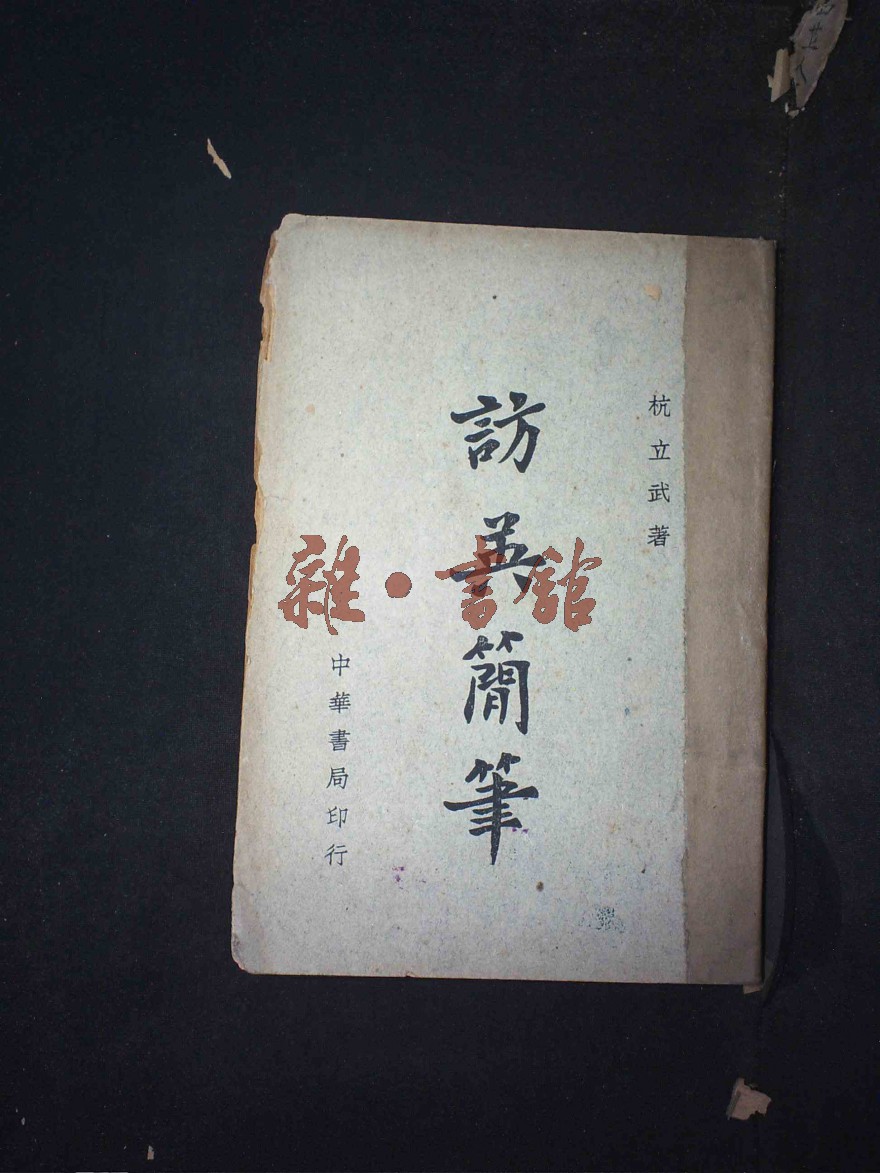 杭立武著
訪英簡筆
中華書局印行
雜·書館